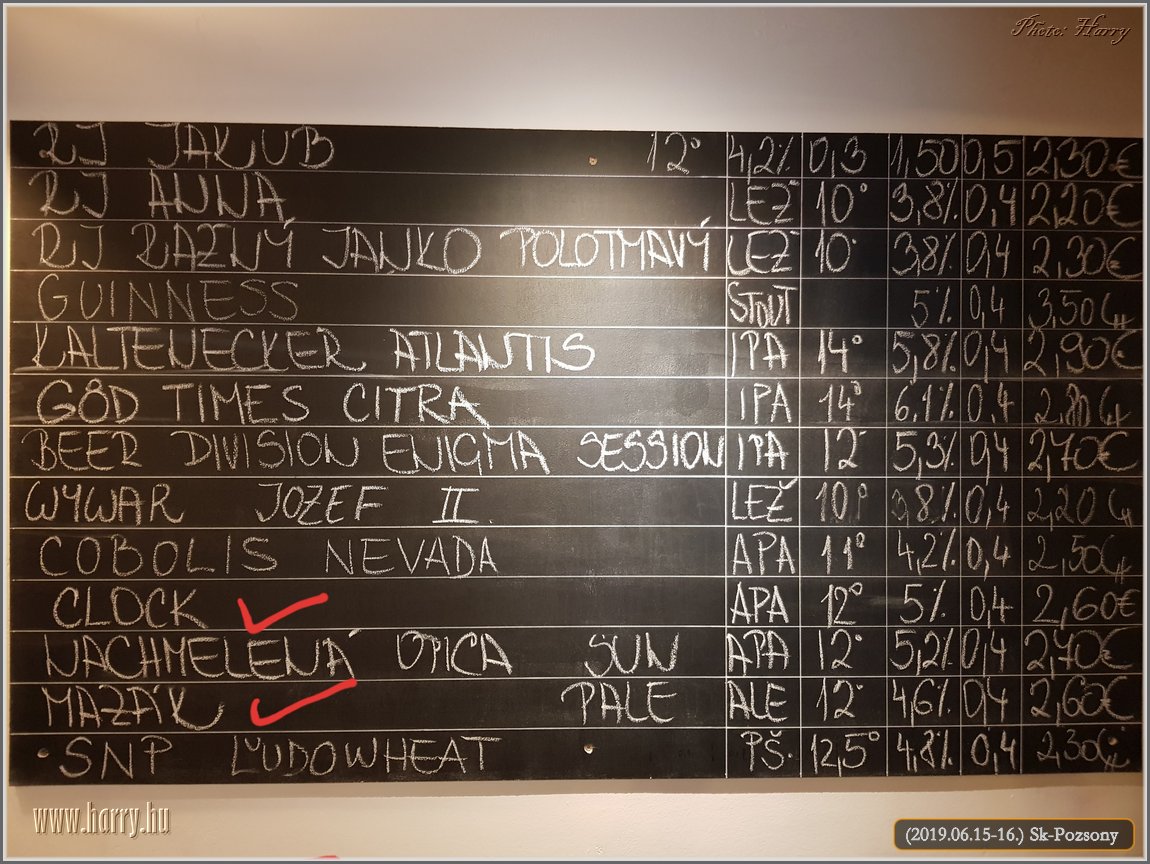 Photo: Harry
RJ JAKUB 12° 4,2% 0,3 1,50 0,5 2,30€
RJ ANNA LEŽ 10° 3,8% 0,4 2,20€
RJ RAZNÝ JANKO POLOTMAVÝ LEŽ 10° 3,8% 0,4 2,30€
GUINNESS STOUT 5% 0,4 3,50€
KALTENECKER ATLANTIS IPA 14° 5,8% 0,4 2,90€
GÔD TIMES CITRA IPA 14° 6,1% 0,4
BEER DIVISION ENIGMA SESSION IPA 12° 5,3% 0,4 2,70€
WYWAR JOZEF II. LEŽ 10° 3,8% 0,4 2,20€
COBOLIS NEVADA APA 11° 4,2% 0,4 2,50€
CLOCK APA 12° 5% 0,4 2,60€
NACHMELENÁ OPICA SUN APA 12° 5,2% 0,4 2,70€
MAZÁK PALE ALE 12° 4,6% 0,4 2,60€
SNP ĽUDOWHEAT PŠ. 12,5° 4,8% 0,4 2,30€
www.harry.hu
(2019.06.15-16.) Sk-Pozsony